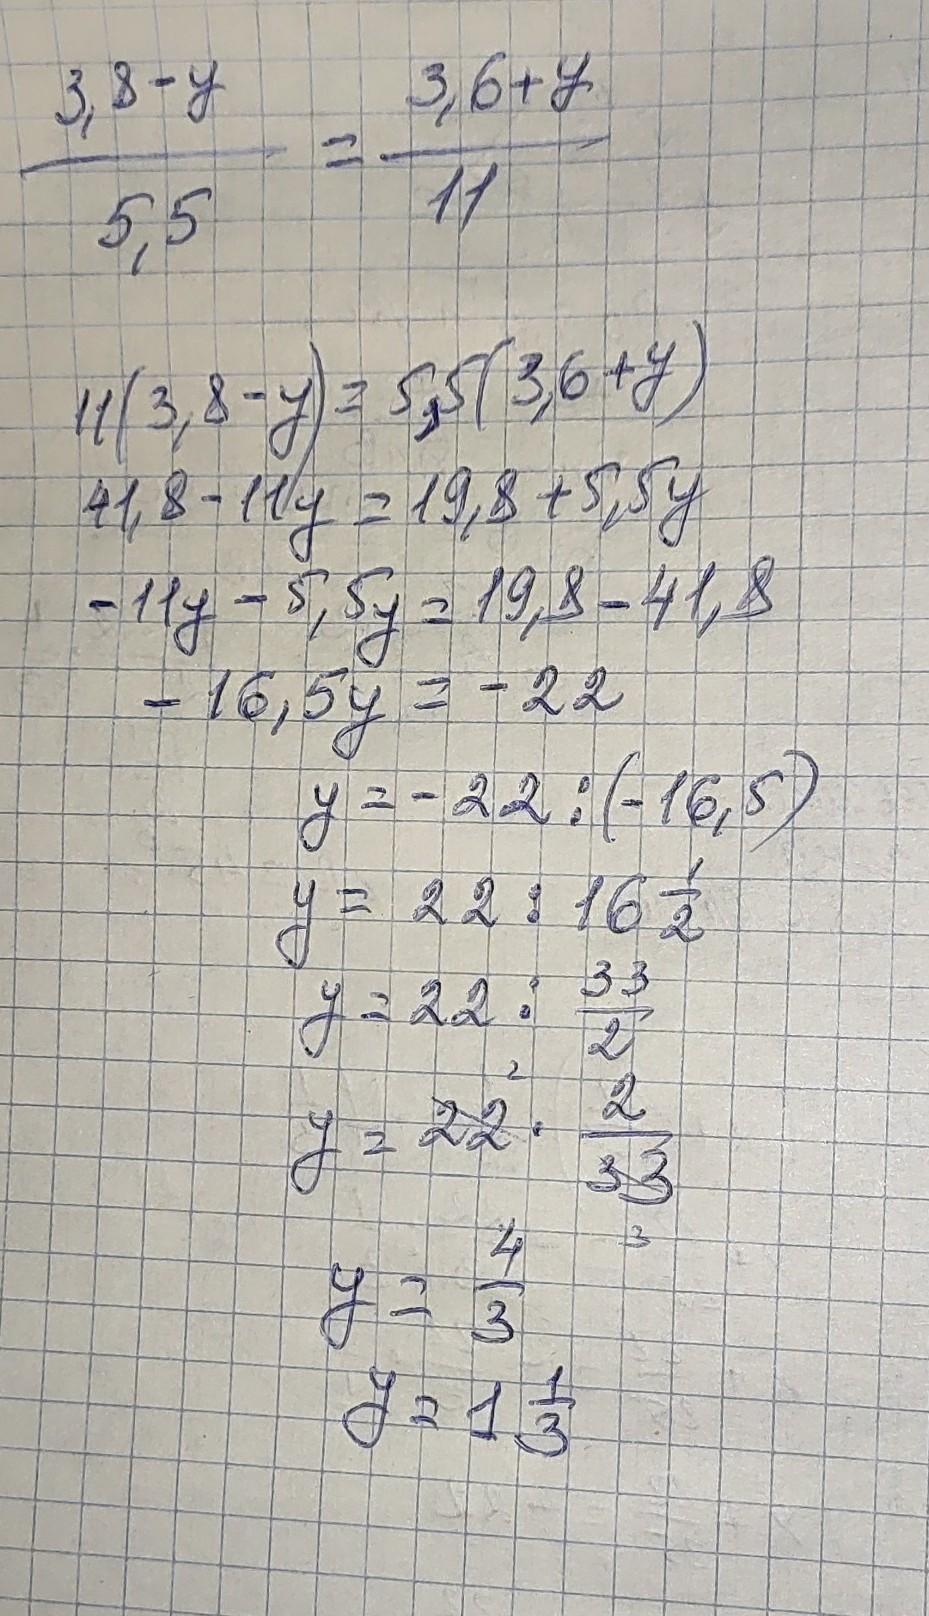 (3,8-y)/5,5 = (3,6+y)/11
11(3,8-y)=5,5(3,6+y)
41,8-11y=19,8+5,5y
-11y-5,5y=19,8-41,8
-16,5y=-22
y=-22:(-16,5)
y=22:16 1/2
y=22:33/2
y=22 2 · 2/33 3
y=4/3
y=1 1/3